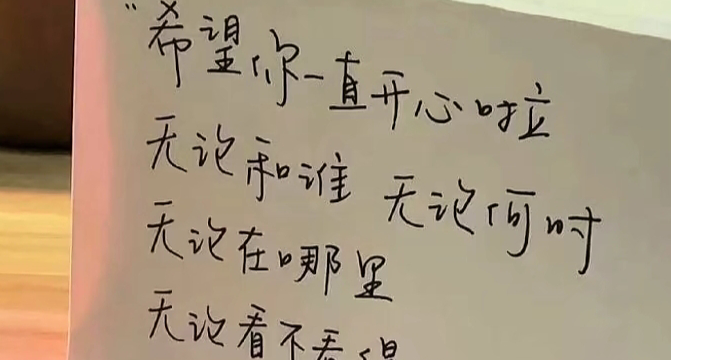 "希望你一直开心啦
无论和谁 无论何时
无论在哪里
无论看不看得